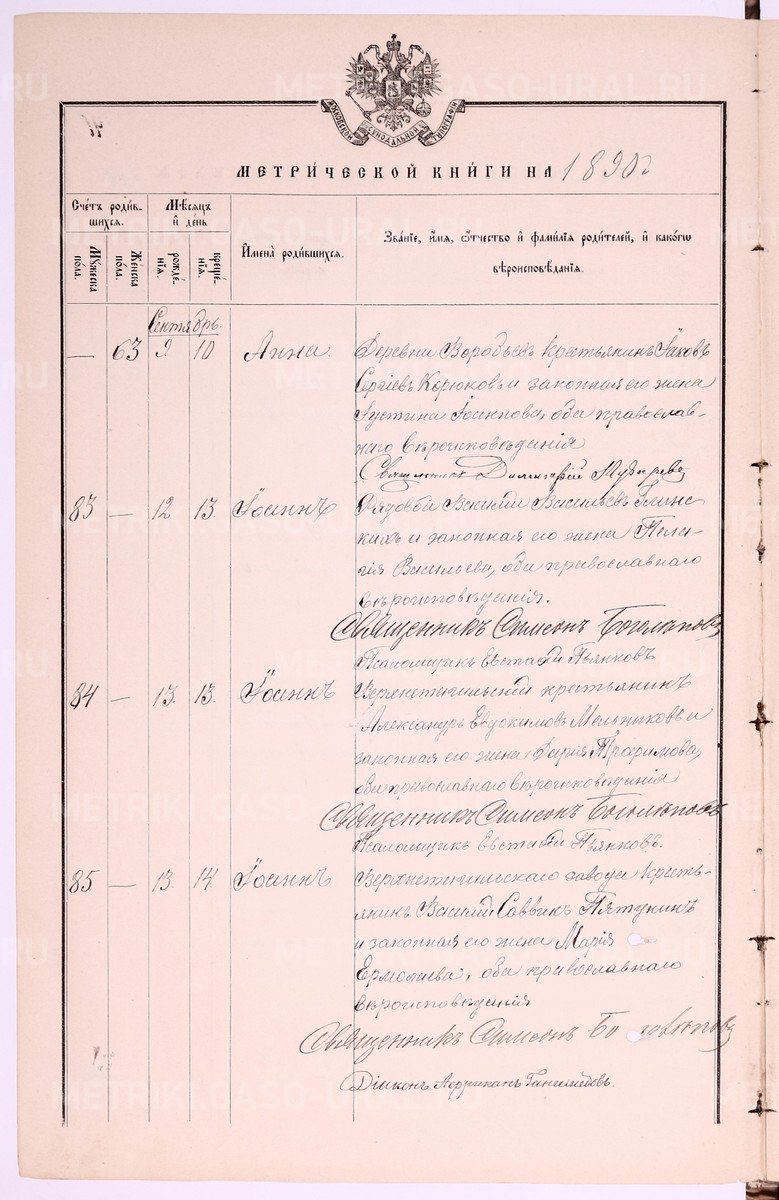 МОСКОВСКОЙ СѴНОДАЛЬНОЙ ТИПОГРАФІИ
МЕТРИ́ЧЕСКОЙ КНИ́ГИ НА 1890 г
Сче́тъ роди́в-
шихся.
Мѣ́сяцъ
и҆ де́нь
Му́жеска
по́ла.
Же́нска
по́ла.
рожде-
нїѧ.
креще-
нїѧ.
И҆мена̀ роди́вшихся.
Зва́нїе, и҆́мѧ, ѻ҆́тчество и҆ фами́лїѧ роди́телей, и҆ како́гѡ
вѣроисповѣ́данїѧ.
Сентябрь.
— 63 9 10 Анна. Деревни Воробьевъ крестьянинъ Іаковъ
Сергіевъ Корюковъ и законная его жена
Іустина Іоаннова, оба православ-
наго вѣроисповѣданія
Священникъ Димитрій
83 — 12 13 Іоаннъ Рядовой Василій Васильевъ Глинс-
кихъ и законная его жена Пела-
гія Васильева, оба православнаго
вѣроисповѣданія.
Священникъ Симеонъ Боголѣповъ
Псаломщикъ Евстафій Пьянковъ
84 — 13. 13. Іоаннъ Верхнетагильскій крестьянинъ
Александръ Евдокимовъ Мельниковъ и
законная его жена Дарія Трофимова,
оба православнаго вѣроисповѣданія
Священникъ Симеонъ Боголѣповъ
Псаломщикъ Евстафій Пьянковъ.
85 — 13. 14. Іоаннъ Верхнетагильскаго завода кресть-
янинъ Василій Саввинъ Пятунинъ
и законная его жена Марія
Ермолаева, оба православнаго
вѣроисповѣданія
Священникъ Симеонъ Боголѣповъ
Діаконъ Африканъ